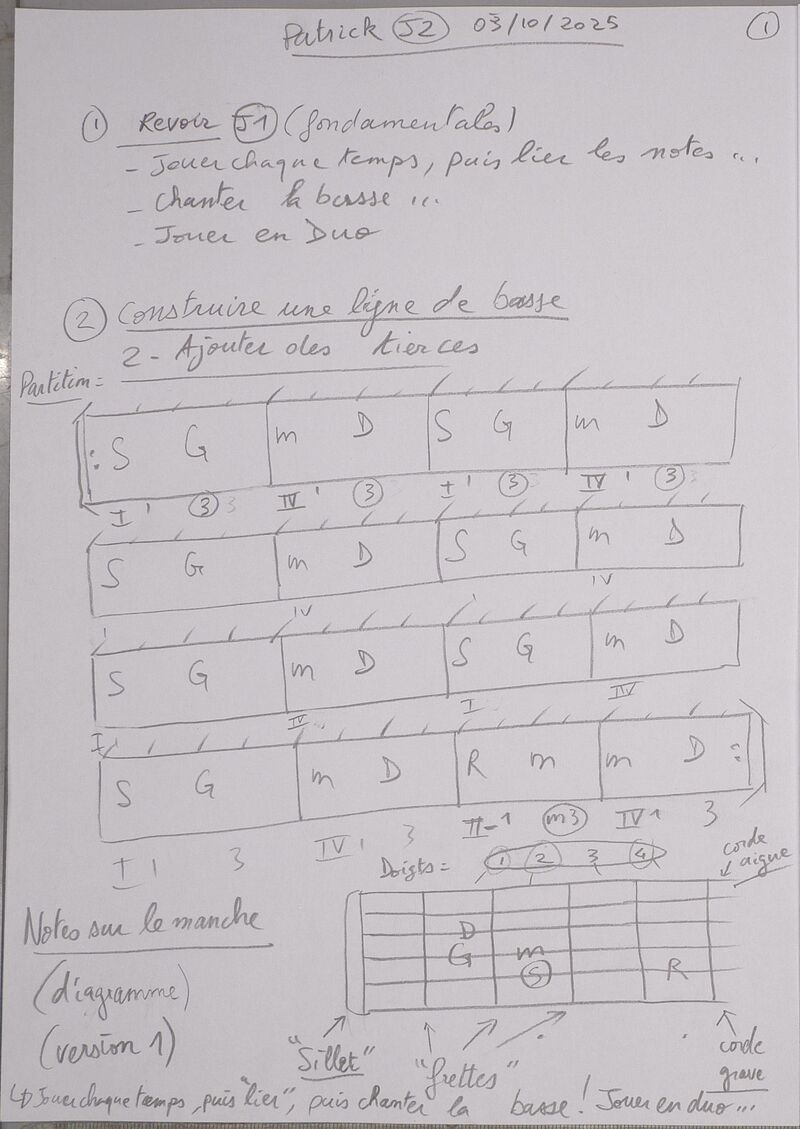 Patrick J2 03/10/2025 1
1 Revoir J1 (fondamentales)
- Jouer chaque temps, puis lier les notes ...
- Chanter la basse ...
- Jouer en Duo
2 Construire une ligne de basse
2 - Ajouter des tierces
Partition =
: S G m D S G m D
I 1 3 3 IV 1 3 I 1 3 3 IV 1 3 3
S G m D S G m D
IV IV
S G m D S G m D
I IV... I IV
S G m D R m m D :
I 1 3 IV 1 3 II-1 m3 IV 1 3
Doigts = 1 2 3 4
corde
aigue
D
G m
S R
Notes sur le manche
(diagramme)
(version 1)
"Sillet"
"frettes"
corde
grave
↳ Jouer chaque temps, puis "lier", puis chanter la basse ! Jouer en duo ...